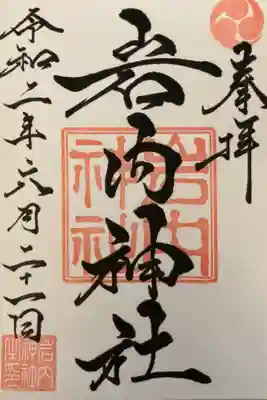 奉拝
岩内神社
岩内神社
令和二年六月二十一日
岩内神社之印